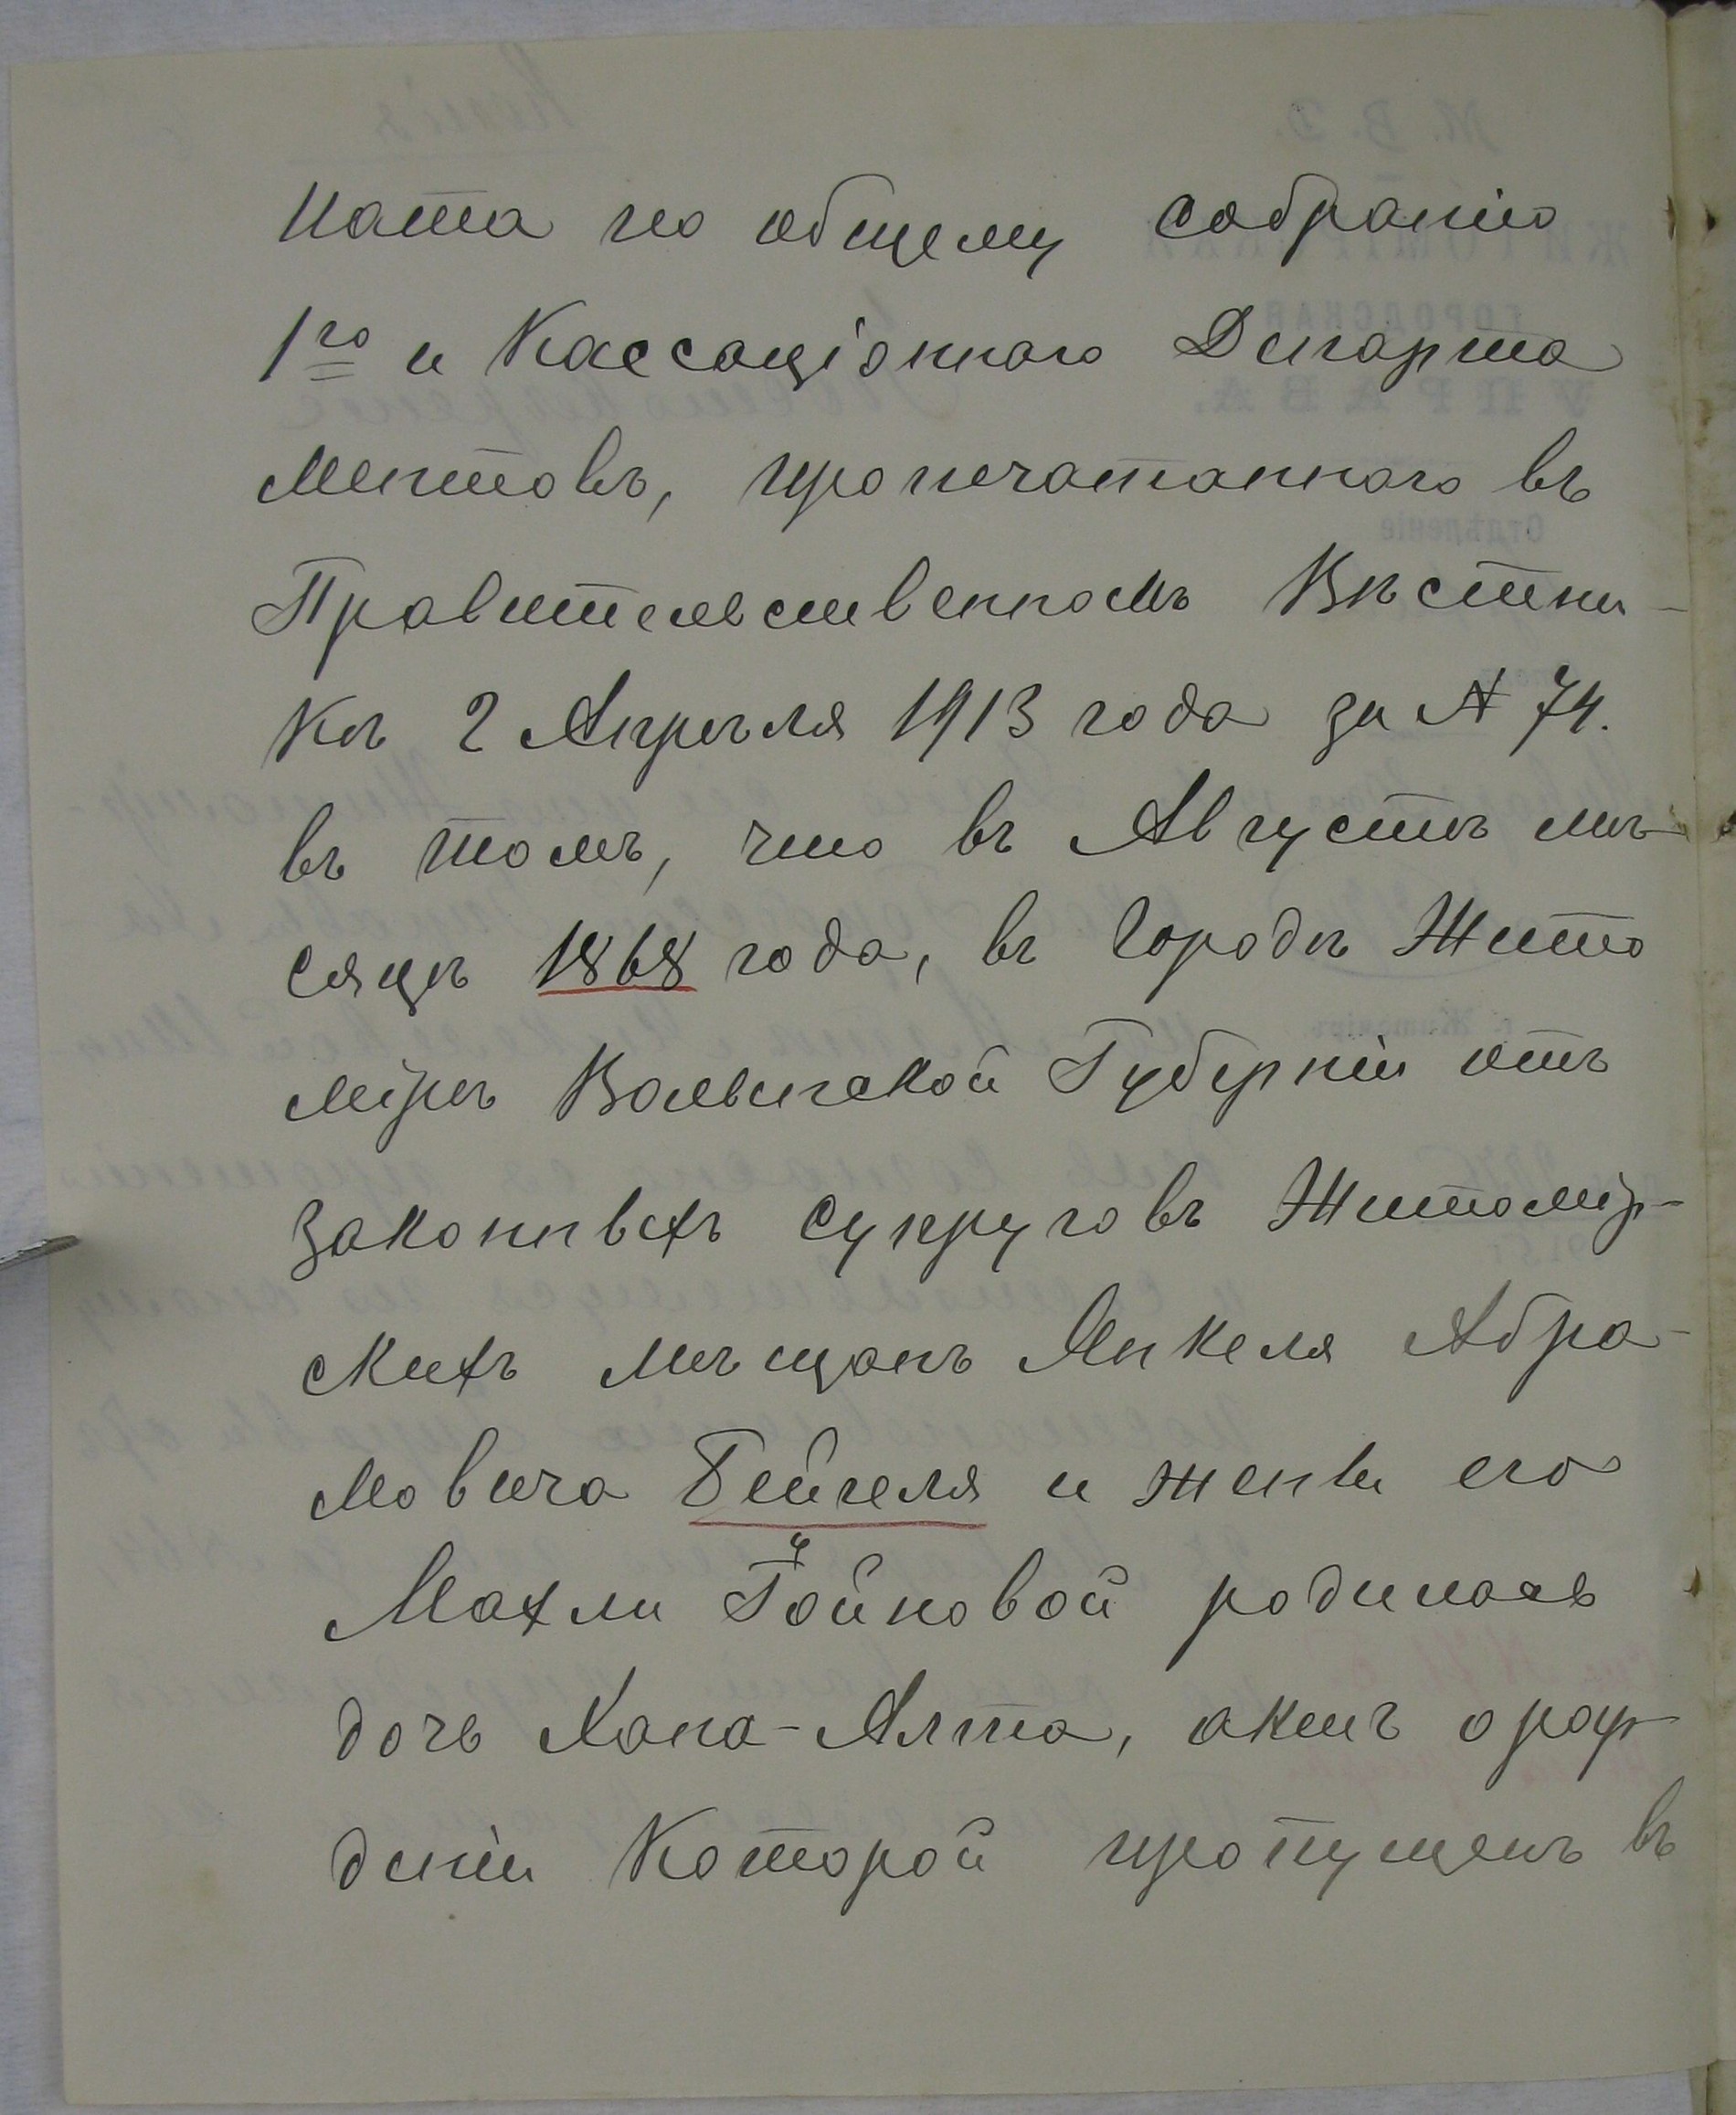 ната по общему собранію
1го и Кассаціоннаго Департа
ментовъ, пропечатаннаго въ
Правительственномъ Вѣстни-
кѣ 2 Апрѣля 1913 года за № 74.
въ томъ, что въ Августѣ мѣ-
сяцѣ 1868 года, въ городѣ Жито
мірѣ Волынской Губерніи отъ
законныхъ супруговъ Житомір-
скихъ мѣщанъ Янкеля Абра-
мовича Бейгеля и жены его
Махли Гойновой родилась
дочь Хана-Алта, актъ о рож
деніи которой пропущенъ въ